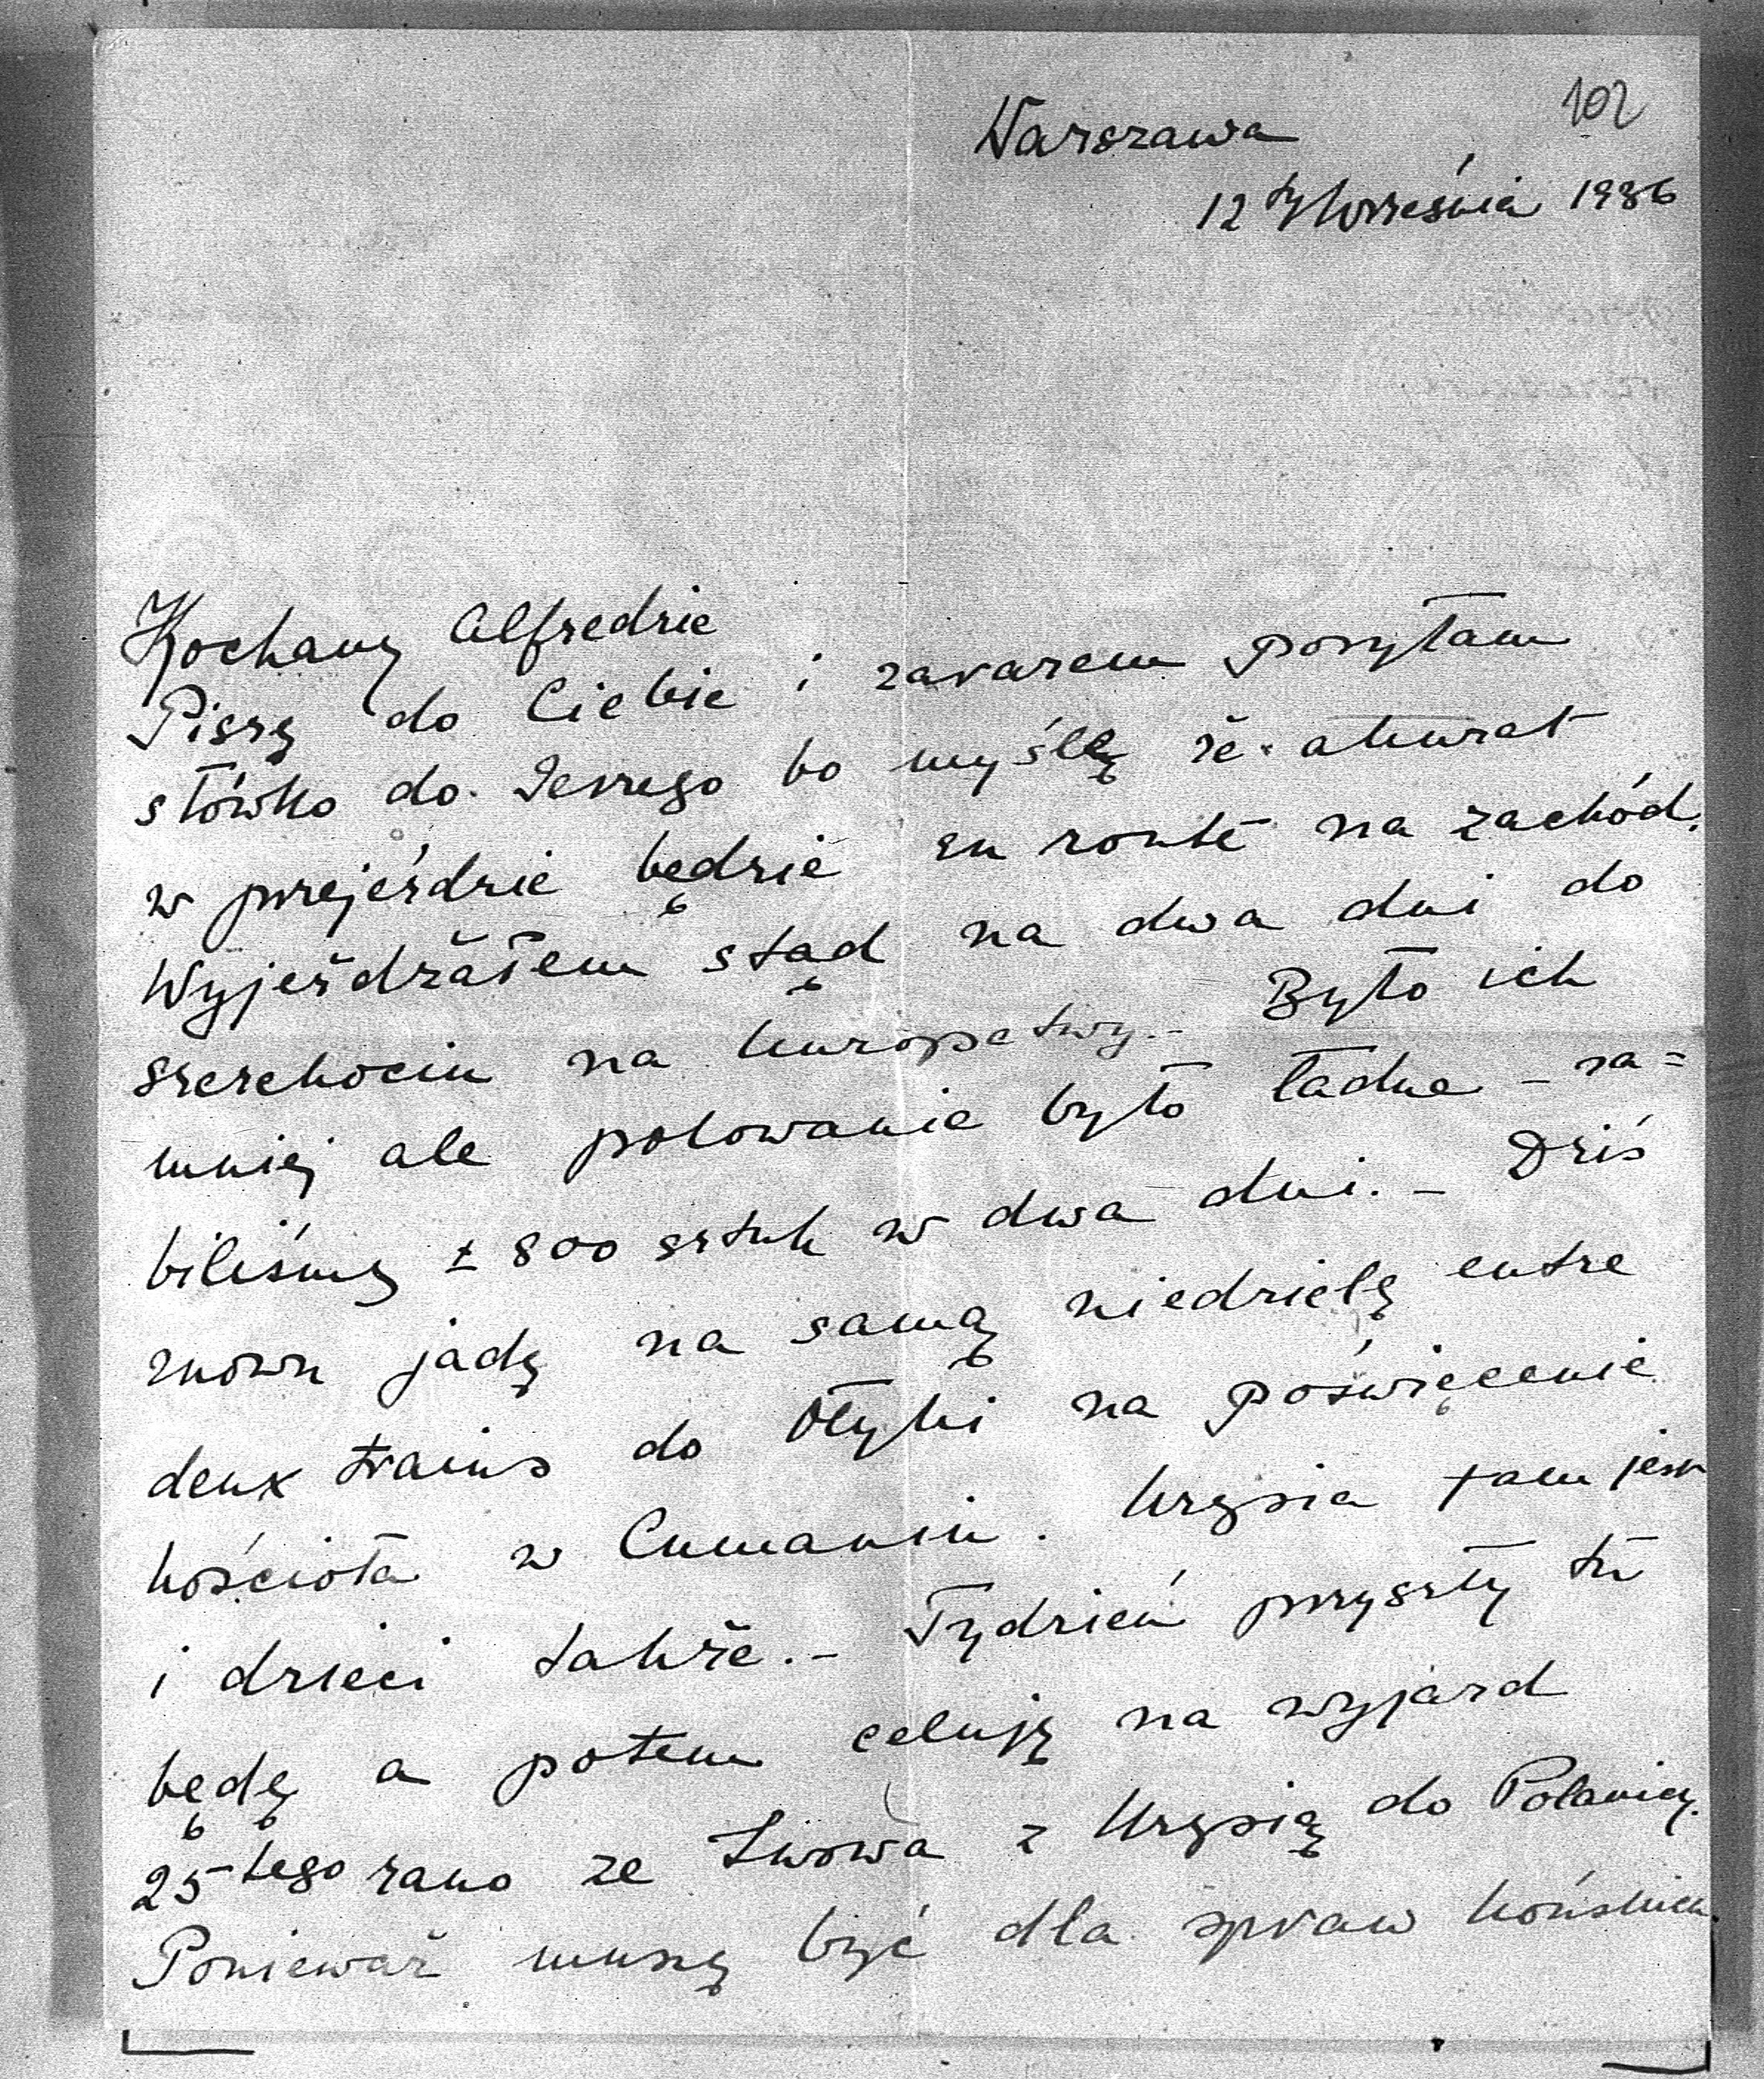 102
Warszawa
12 ty Września 1936
Kochany Alfredzie
Piszę do Ciebie i zarazem posyłam
słówko do Jerzego bo myślę że akurat
w przejeździe będzie en route na zachód.
Wyjeżdżałem stąd na dwa dni do
Szczekocin na kuropatwy. - Było ich
mniej ale polowanie było ładne - za=
biliśmy ± 800 sztuk w dwa dni. - Dziś
znowu jadę na samą niedzielę entre
deux trains do Ołyki na poświęcenie
kościoła w Cumaniu. Krysia tam jest
i dzieci także. - Tydzień przyszły tu
będę a potem celuję na wyjazd
25-tego rano ze Lwowa z Krysią do Polanicy.
Ponieważ muszę być dla spraw końskich